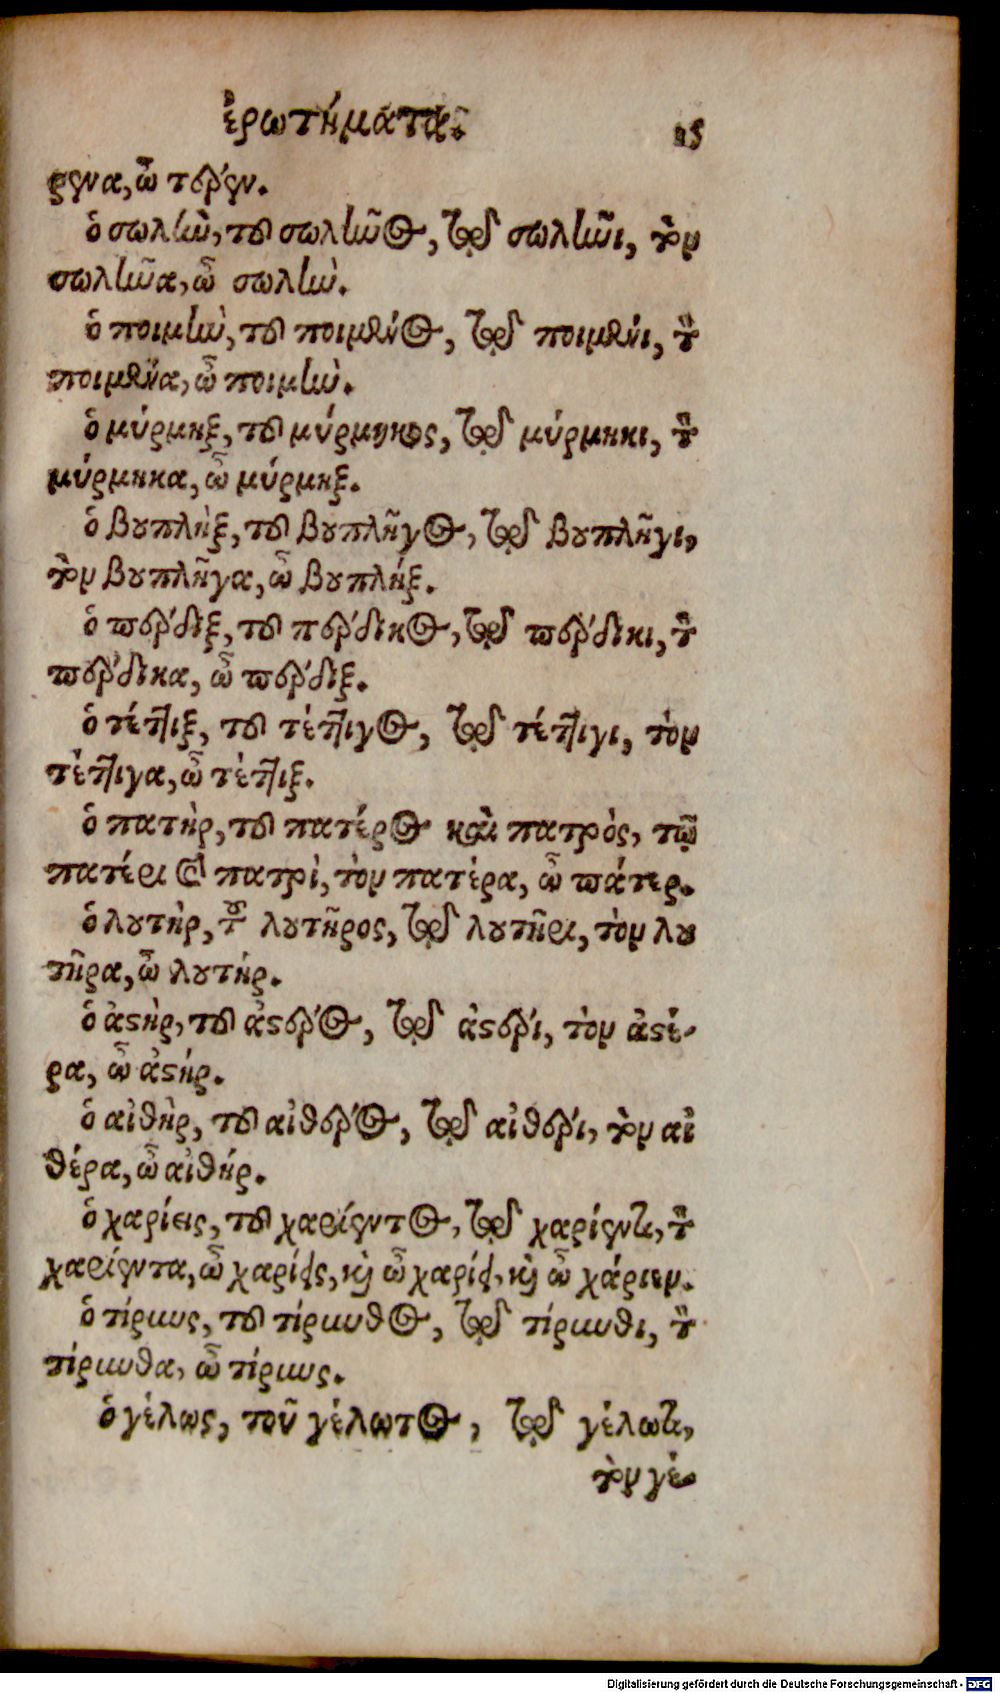 ἐρωτήματα. 15
ρενα, ὦ τέρεν.
ὁ σωλὴν, τοῦ σωλῆνος, τῷ σωλῆνι, τὸν
σωλῆνα, ὦ σωλὴν.
ὁ ποιμὴν, τοῦ ποιμένος, τῷ ποιμένι, τὸν
ποιμένα, ὦ ποιμὴν.
ὁ μύρμηξ, τοῦ μύρμηκος, τῷ μύρμηκι, τὸν
μύρμηκα, ὦ μύρμηξ.
ὁ βουπλὴξ, τοῦ βουπλῆγος, τῷ βουπλῆγι,
τὸν βουπλῆγα, ὦ βουπλήξ.
ὁ πέρδιξ, τοῦ πέρδικος, τῷ πέρδικι, τὸν
πέρδικα, ὦ πέρδιξ.
ὁ τέττιξ, τοῦ τέττιγος, τῷ τέττιγι, τὸν
τέττιγα, ὦ τέττιξ.
ὁ πατὴρ, τοῦ πατέρος καὶ πατρὸς, τῷ
πατέρι καὶ πατρὶ, τὸν πατέρα, ὦ πάτερ.
ὁ λουτὴρ, τοῦ λουτῆρος, τῷ λουτῆρι, τὸν λου
τῆρα, ὦ λουτήρ.
ὁ ἀστὴρ, τοῦ ἀστέρος, τῷ ἀστέρι, τὸν ἀστέ-
ρα, ὦ ἀστήρ.
ὁ αἰθὴρ, τοῦ αἰθέρος, τῷ αἰθέρι, τὸν αἰ
θέρα, ὦ αἰθήρ.
ὁ χαρίεις, τοῦ χαρίεντος, τῷ χαρίεντι, τὸν
χαρίεντα, ὦ χαρίεις, καὶ ὦ χαρίει, καὶ ὦ χάριεν.
ὁ τίρινυς, τοῦ τίρινυθος, τῷ τίρινυθι, τὸν
τίρινυθα, ὦ τίρινυς.
ὁ γέλως, τοῦ γέλωτος, τῷ γέλωτι,
τὸν γέ-
Digitalisierung gefördert durch die Deutsche Forschungsgemeinschaft - DFG